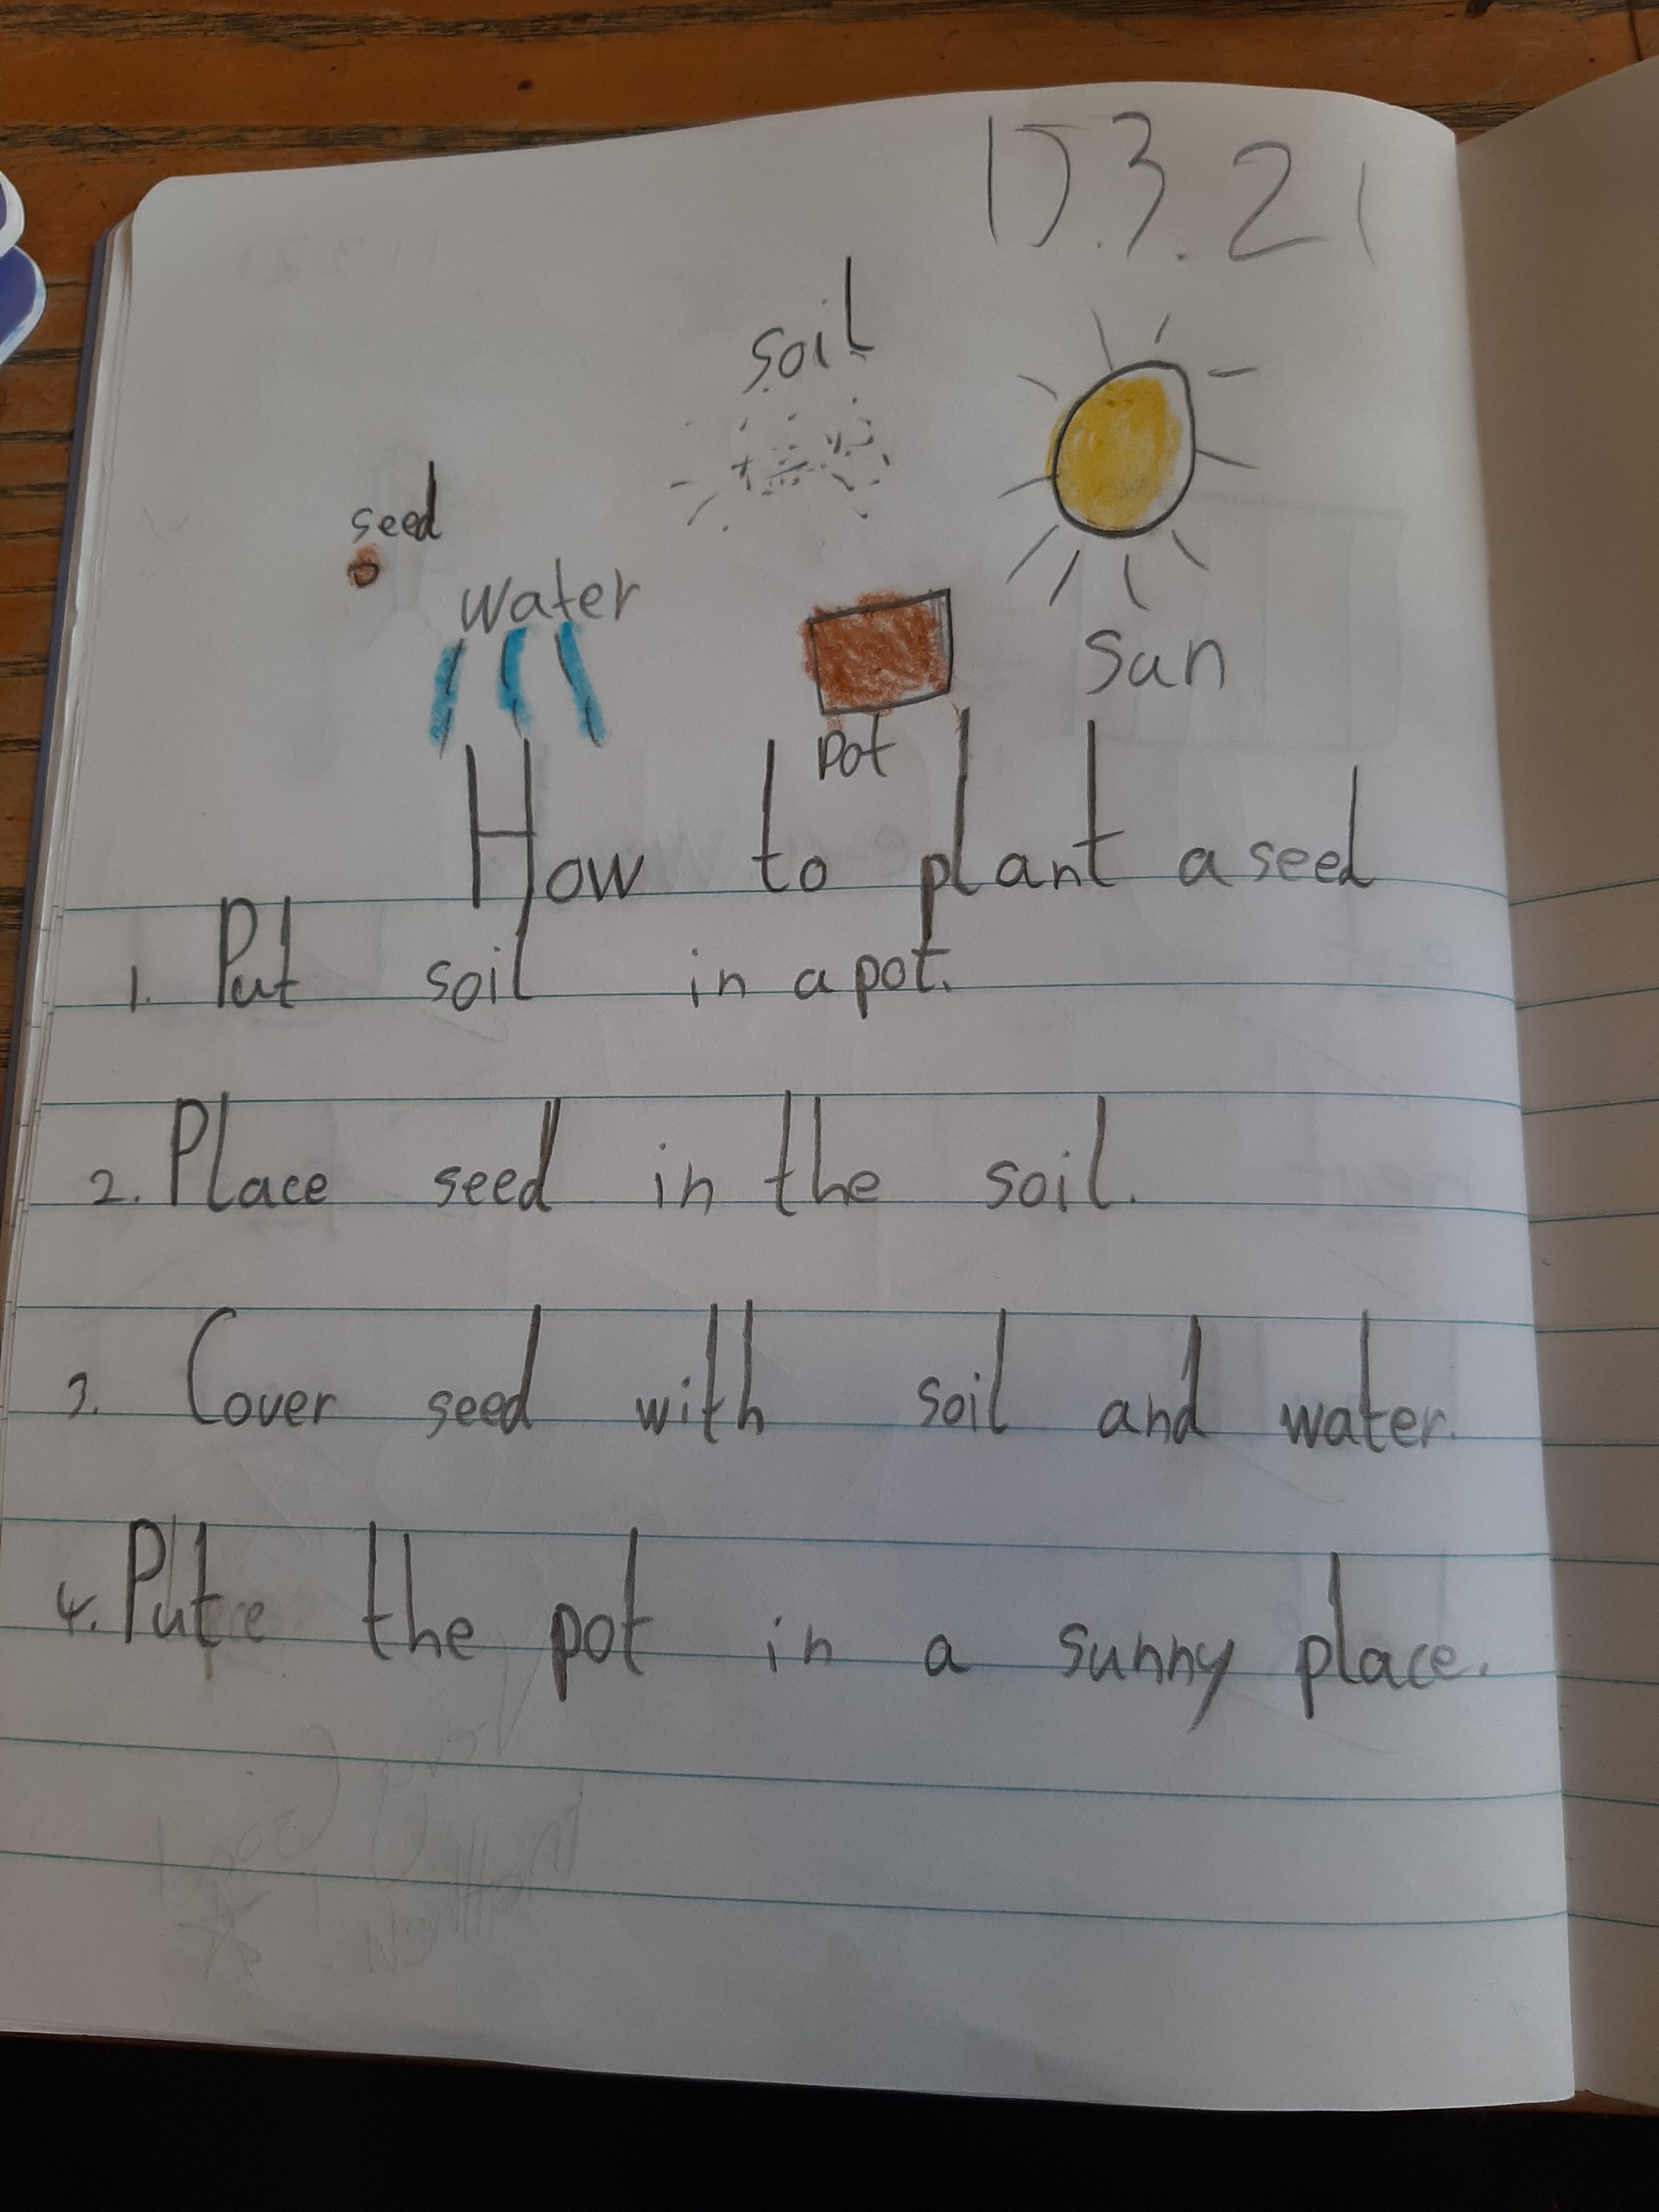 17.3.21
soil
seed
water
sun
pot
How to plant a seed
1. Put soil in a pot.
2. Place seed in the soil.
3. Cover seed with soil and water.
4. Put the pot in a sunny place.